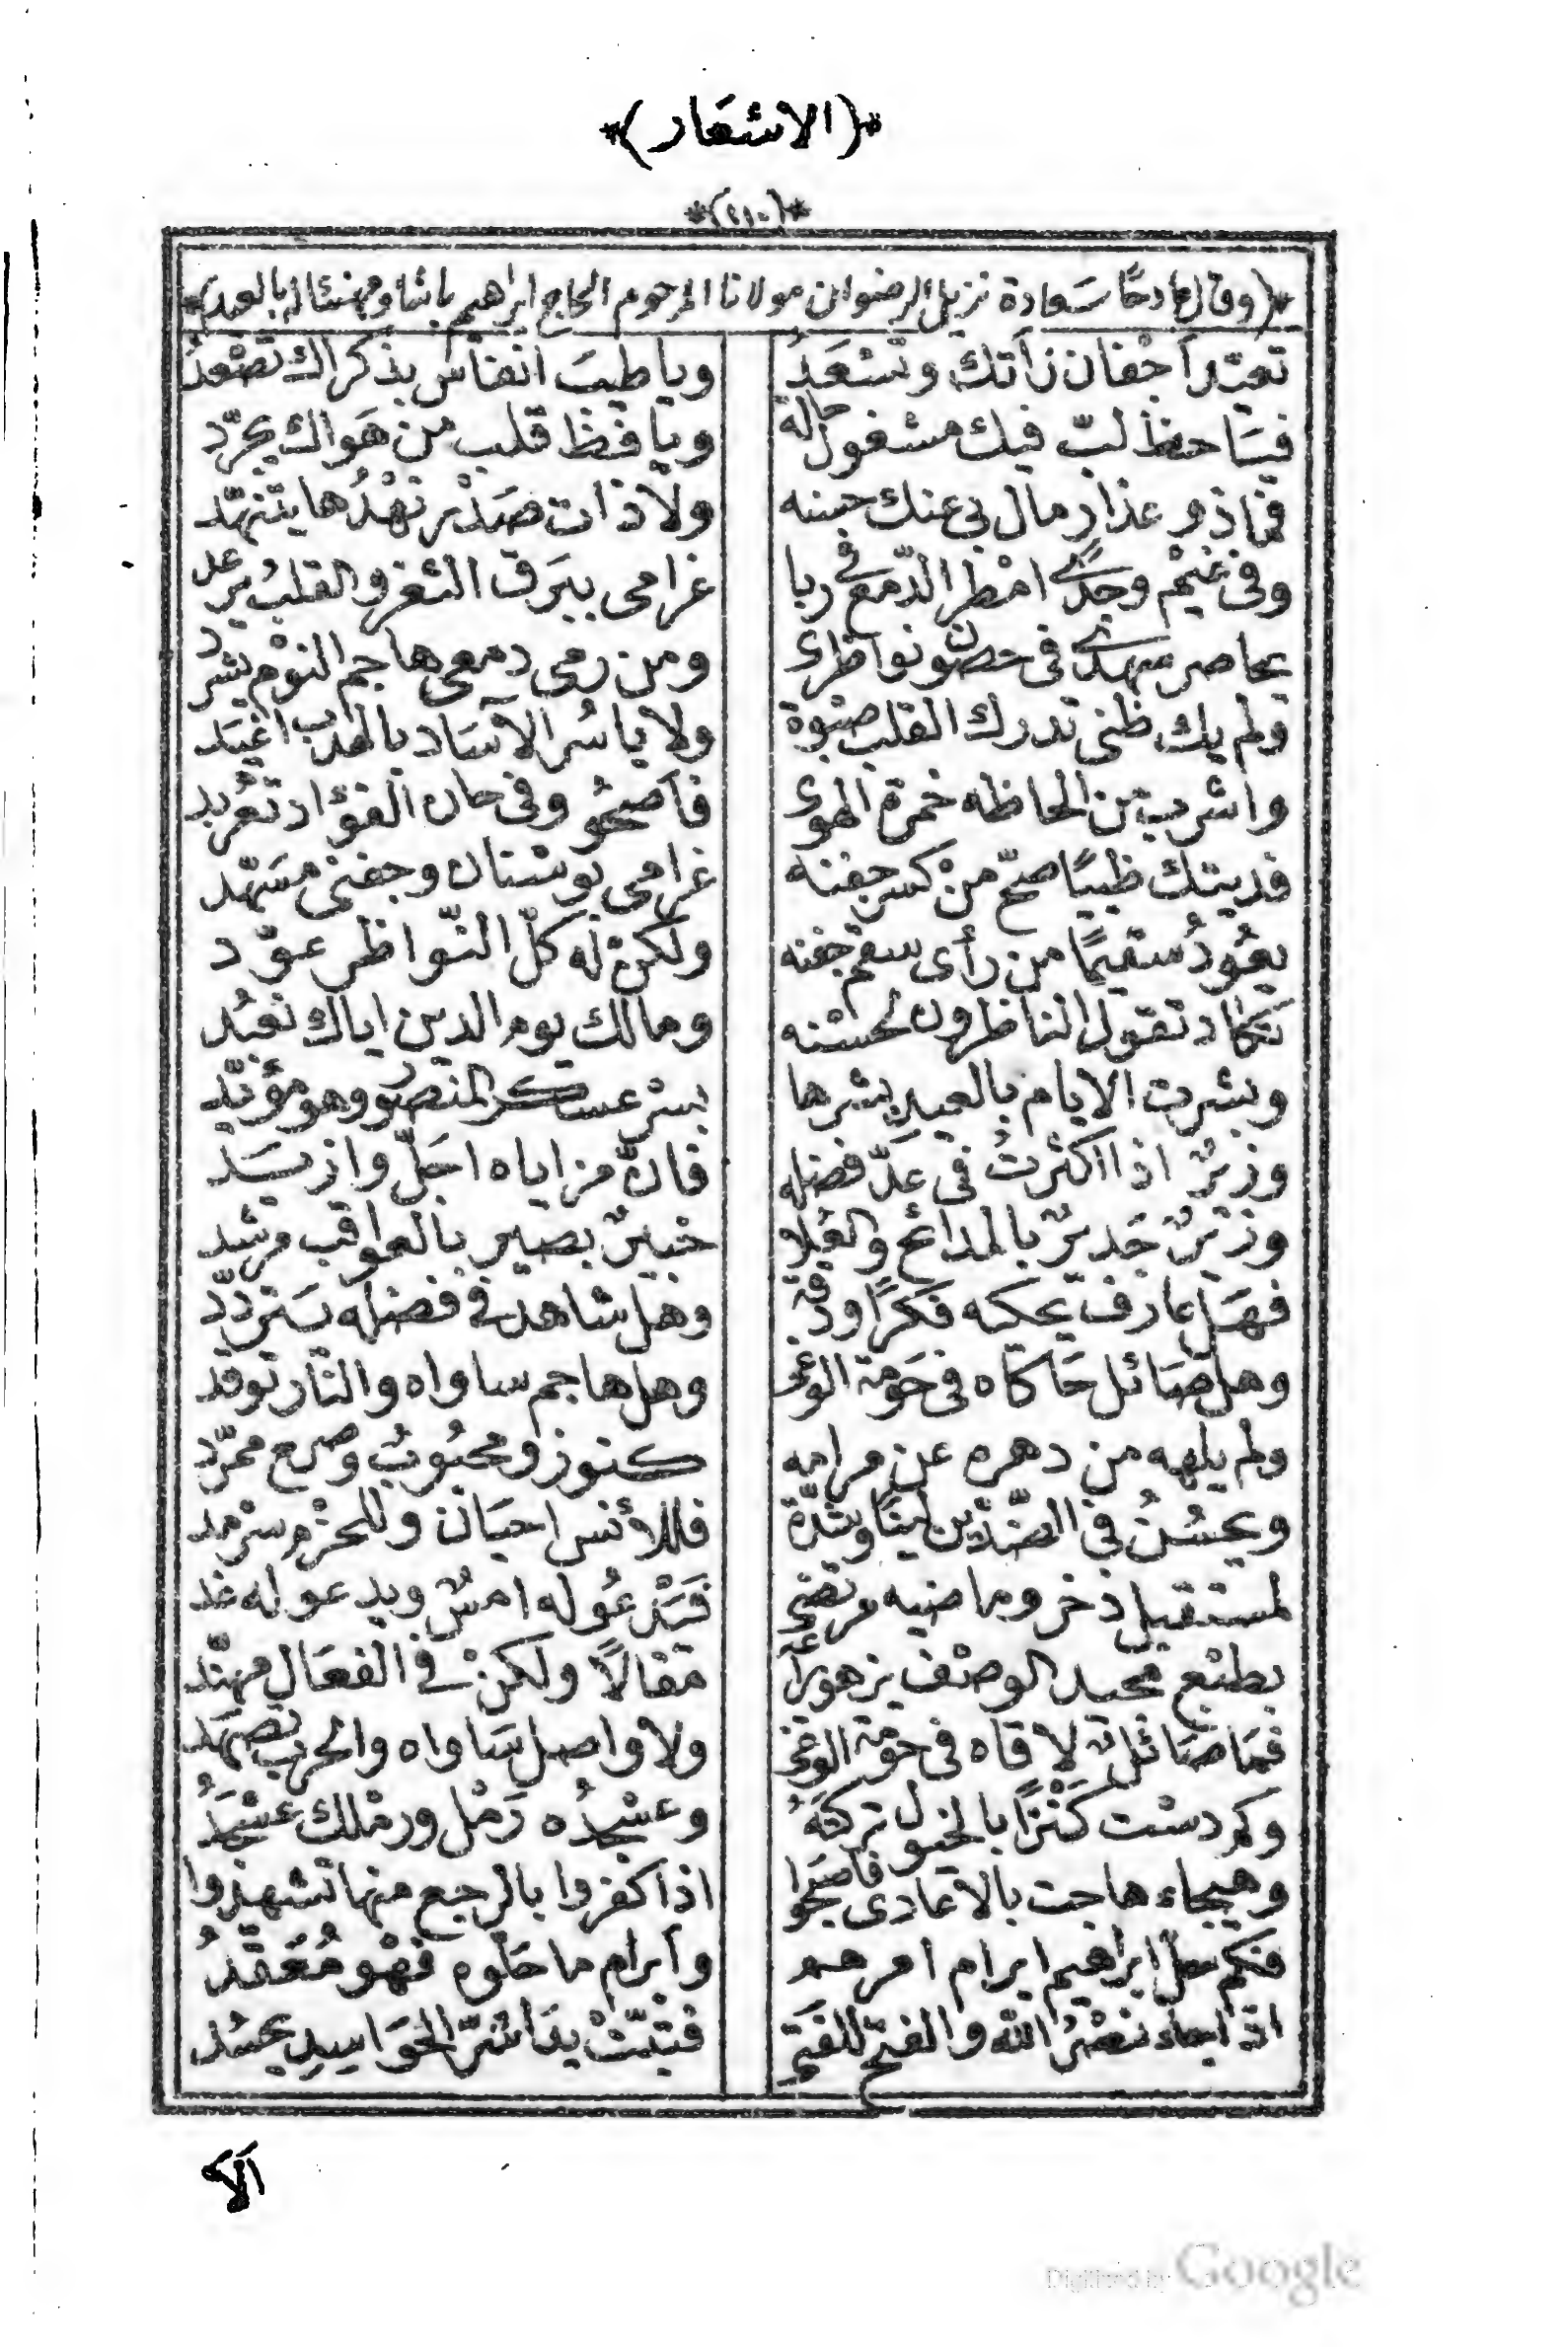 *(الاشعار)*
*(٢١٠)*
*(وقال مادحًا سعادة نزيل الرضوان مولانا المرحوم الحاج ابراهيم باشا ومهنئا له بالعيد)*
تقرّ اجْفان رَاتك وتسْعَدُ ويا طيبَ انفاس بذكراك تصْعدُ
فيا حظ لبّ فيك مشغول حاله ويا فظ قلب من هَواك يجرّد
فما ذو عذار مال بى عنك حبه ولا ذات صَدْر نهْدُها يتنهّد
وفى غيْم وجْدى امْطر الدّمع فى ربا غرامى ببرق الثغر والقلبُ يرعد
يحاصر سهدى فى حصون نواظرى ومن رمى دمعى هاجم النوْم يشرد
ولم يك ظنى تدرك القلب صبْوة ولا ياسُر الآسَاد بالهدب اغْيَد
واشرب من الحاظه خمرة الهوى فاصحُو وفى حان الفؤاد تعْربد
فديتك ظبيًا صحّ منْ كسر جفنه غرامى بوسْنان وجفنى مسَهّد
يعُودُ سَقيمًا من رأى سقم جفنه ولكنْ له كلّ النّواظر عوّد
تكاد تقول الناظرون لحسْنه ومالك يوم الدين اياك نعبُد
وبشرت الايام بالعيد بشرها بسر عساكر المنصور وهو مؤيّد
وزيرٌ اذا اكثرتُ فى عَدّ فضله فانّ مزاياه اجَلّ وازيَد
وزيْرٌ جَديرٌ بالمدائح والعُلا خبيرٌ بصيرٌ بالعواقب مرشد
فهَل عارفٌ يحكيه فكرًا ودقة وهل شاهد فى فضله يتردّد
وهل صَائل حَاكاه فى حَومة الوغى وهل هاجم ساواه والنّار توقد
ولم يلهه من دهره عن مرامه كنوز ومحبُوبٌ وصرح ممرّد
ويحسُنُ فى الضّدّين لينًا وشدّة فللأنس احيَانٌ وللحزْم سرْمد
لمستقبل ذخر وماضيه مرتضى فيَدْعُو له امسٌ ويدعو له غد
بطبْع مجيد الوصْف يزهو يراعه مقالاً ولكنْ فى الفعَال مهنّد
فمَا صَائلٌ لاقاه فى حومة الوغى ولا واصل سَاواه والحرب تصهد
وكم دسْت كنْزًا بالخيول تركتهُ وعسْجدُه رَمْل ورمْلك عسْجَدُ
وهيجاء هاجت بالاعادى فاصبحوا اذا كفروا بالرجع منها تشهّدوا
فكم حلّ ابراهيم ابرام امرهم وابرام ما حَلوْه فهْو مُعَقّدُ
اذا جاء نصْرُ الله والفتح للفتى فتبّتْ يدَا شرّ الحَواسِد يحسُد
الا